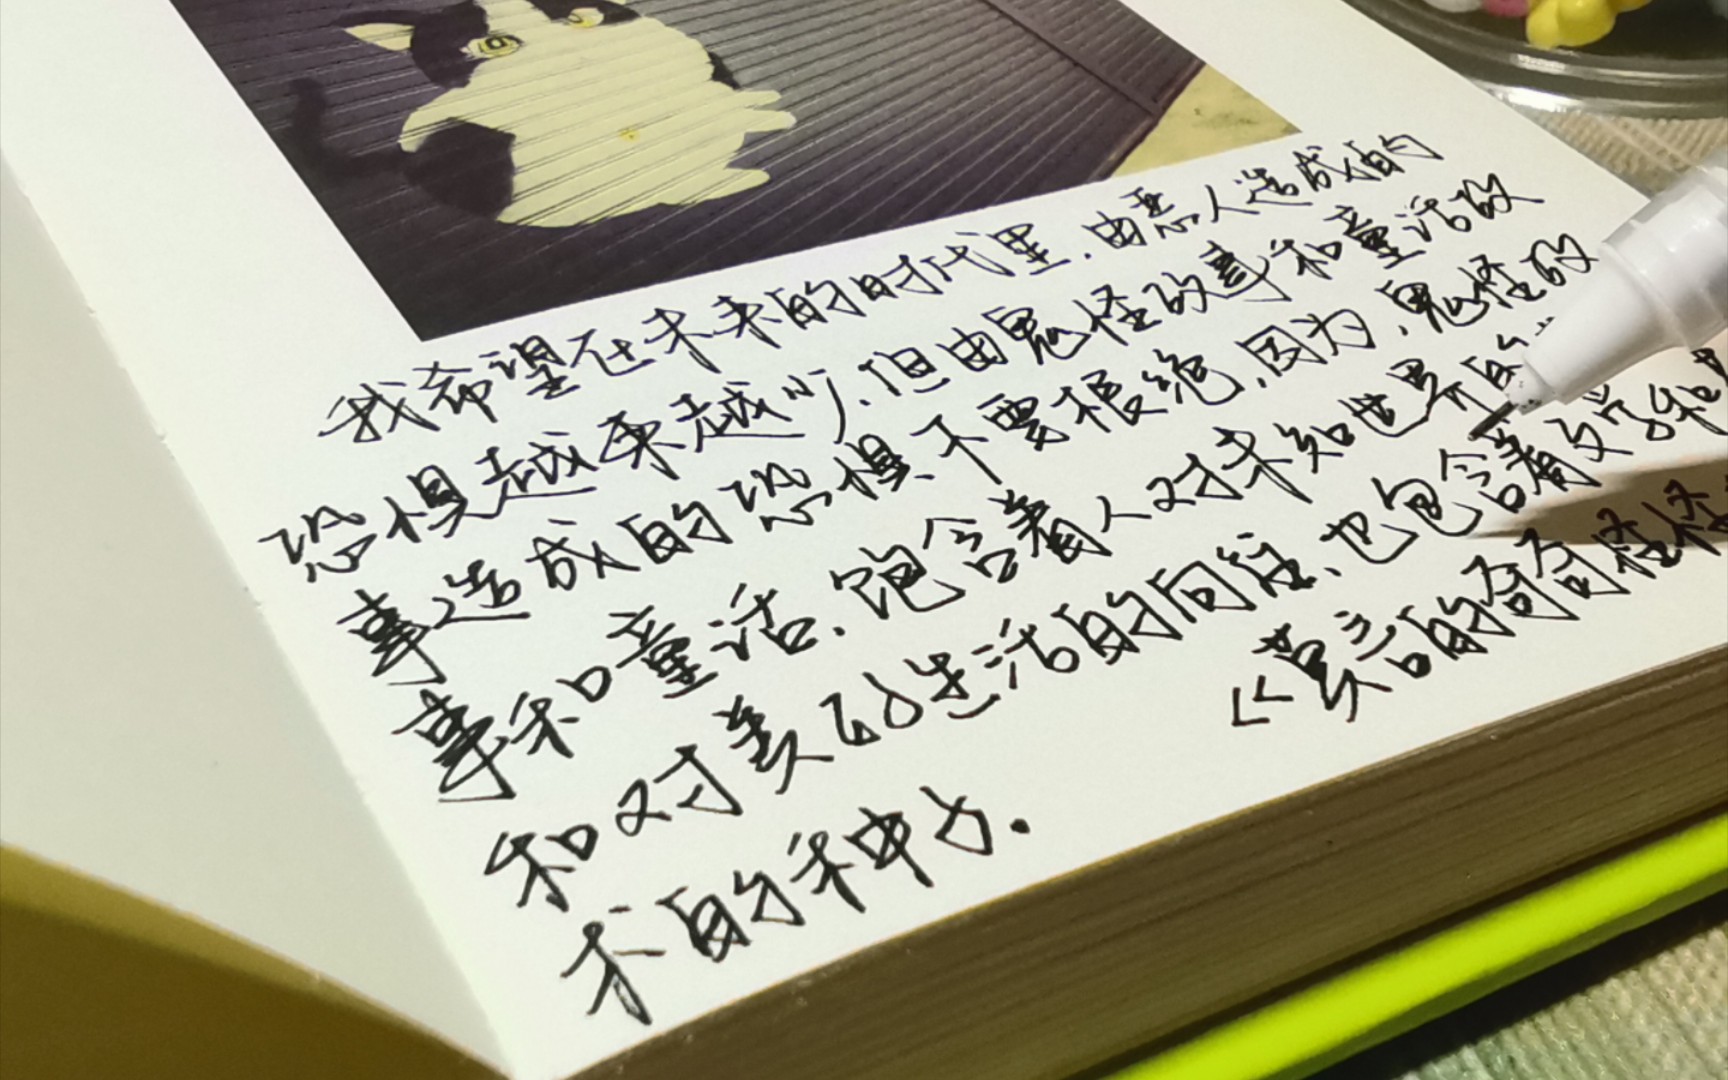 我希望在未来的时代里，由恶人造成的
恐惧越来越少，但由鬼怪故事和童话故
事造成的恐惧不要根绝，因为，鬼怪故
事和童话，饱含着人对未知世界的
和对美好生活的向往，也包含着文学和
术的种子。
《莫言的奇奇怪怪